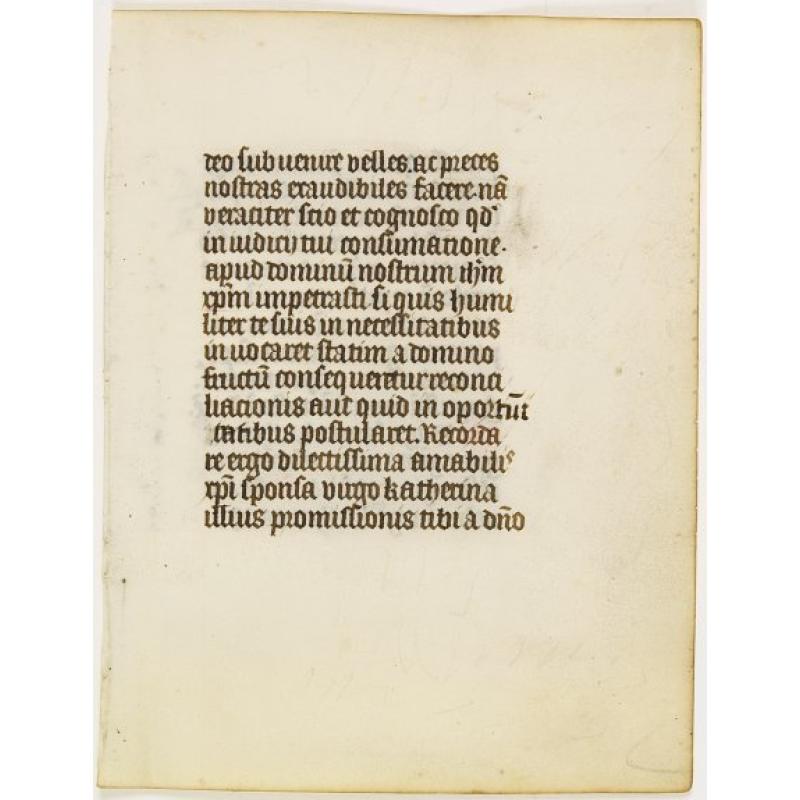 deo subuenire velles. ac preces
nostras exaudibiles facere. nā
veraciter scio et cognosco qd'
in iudicij tui consūmatione.
apud dominū nostrum ihm̄
xp̄m impetrasti si quis humi
liter te suis in necessitatibus
inuocaret statim a domino
fructū consequeretur reconci
liacionis aut quid in oportūi
tatibus postularet. Recorda
re ergo dilectissima amabilis
xp̄i sponsa virgo katherina
illius promissionis tibi a dn̄o